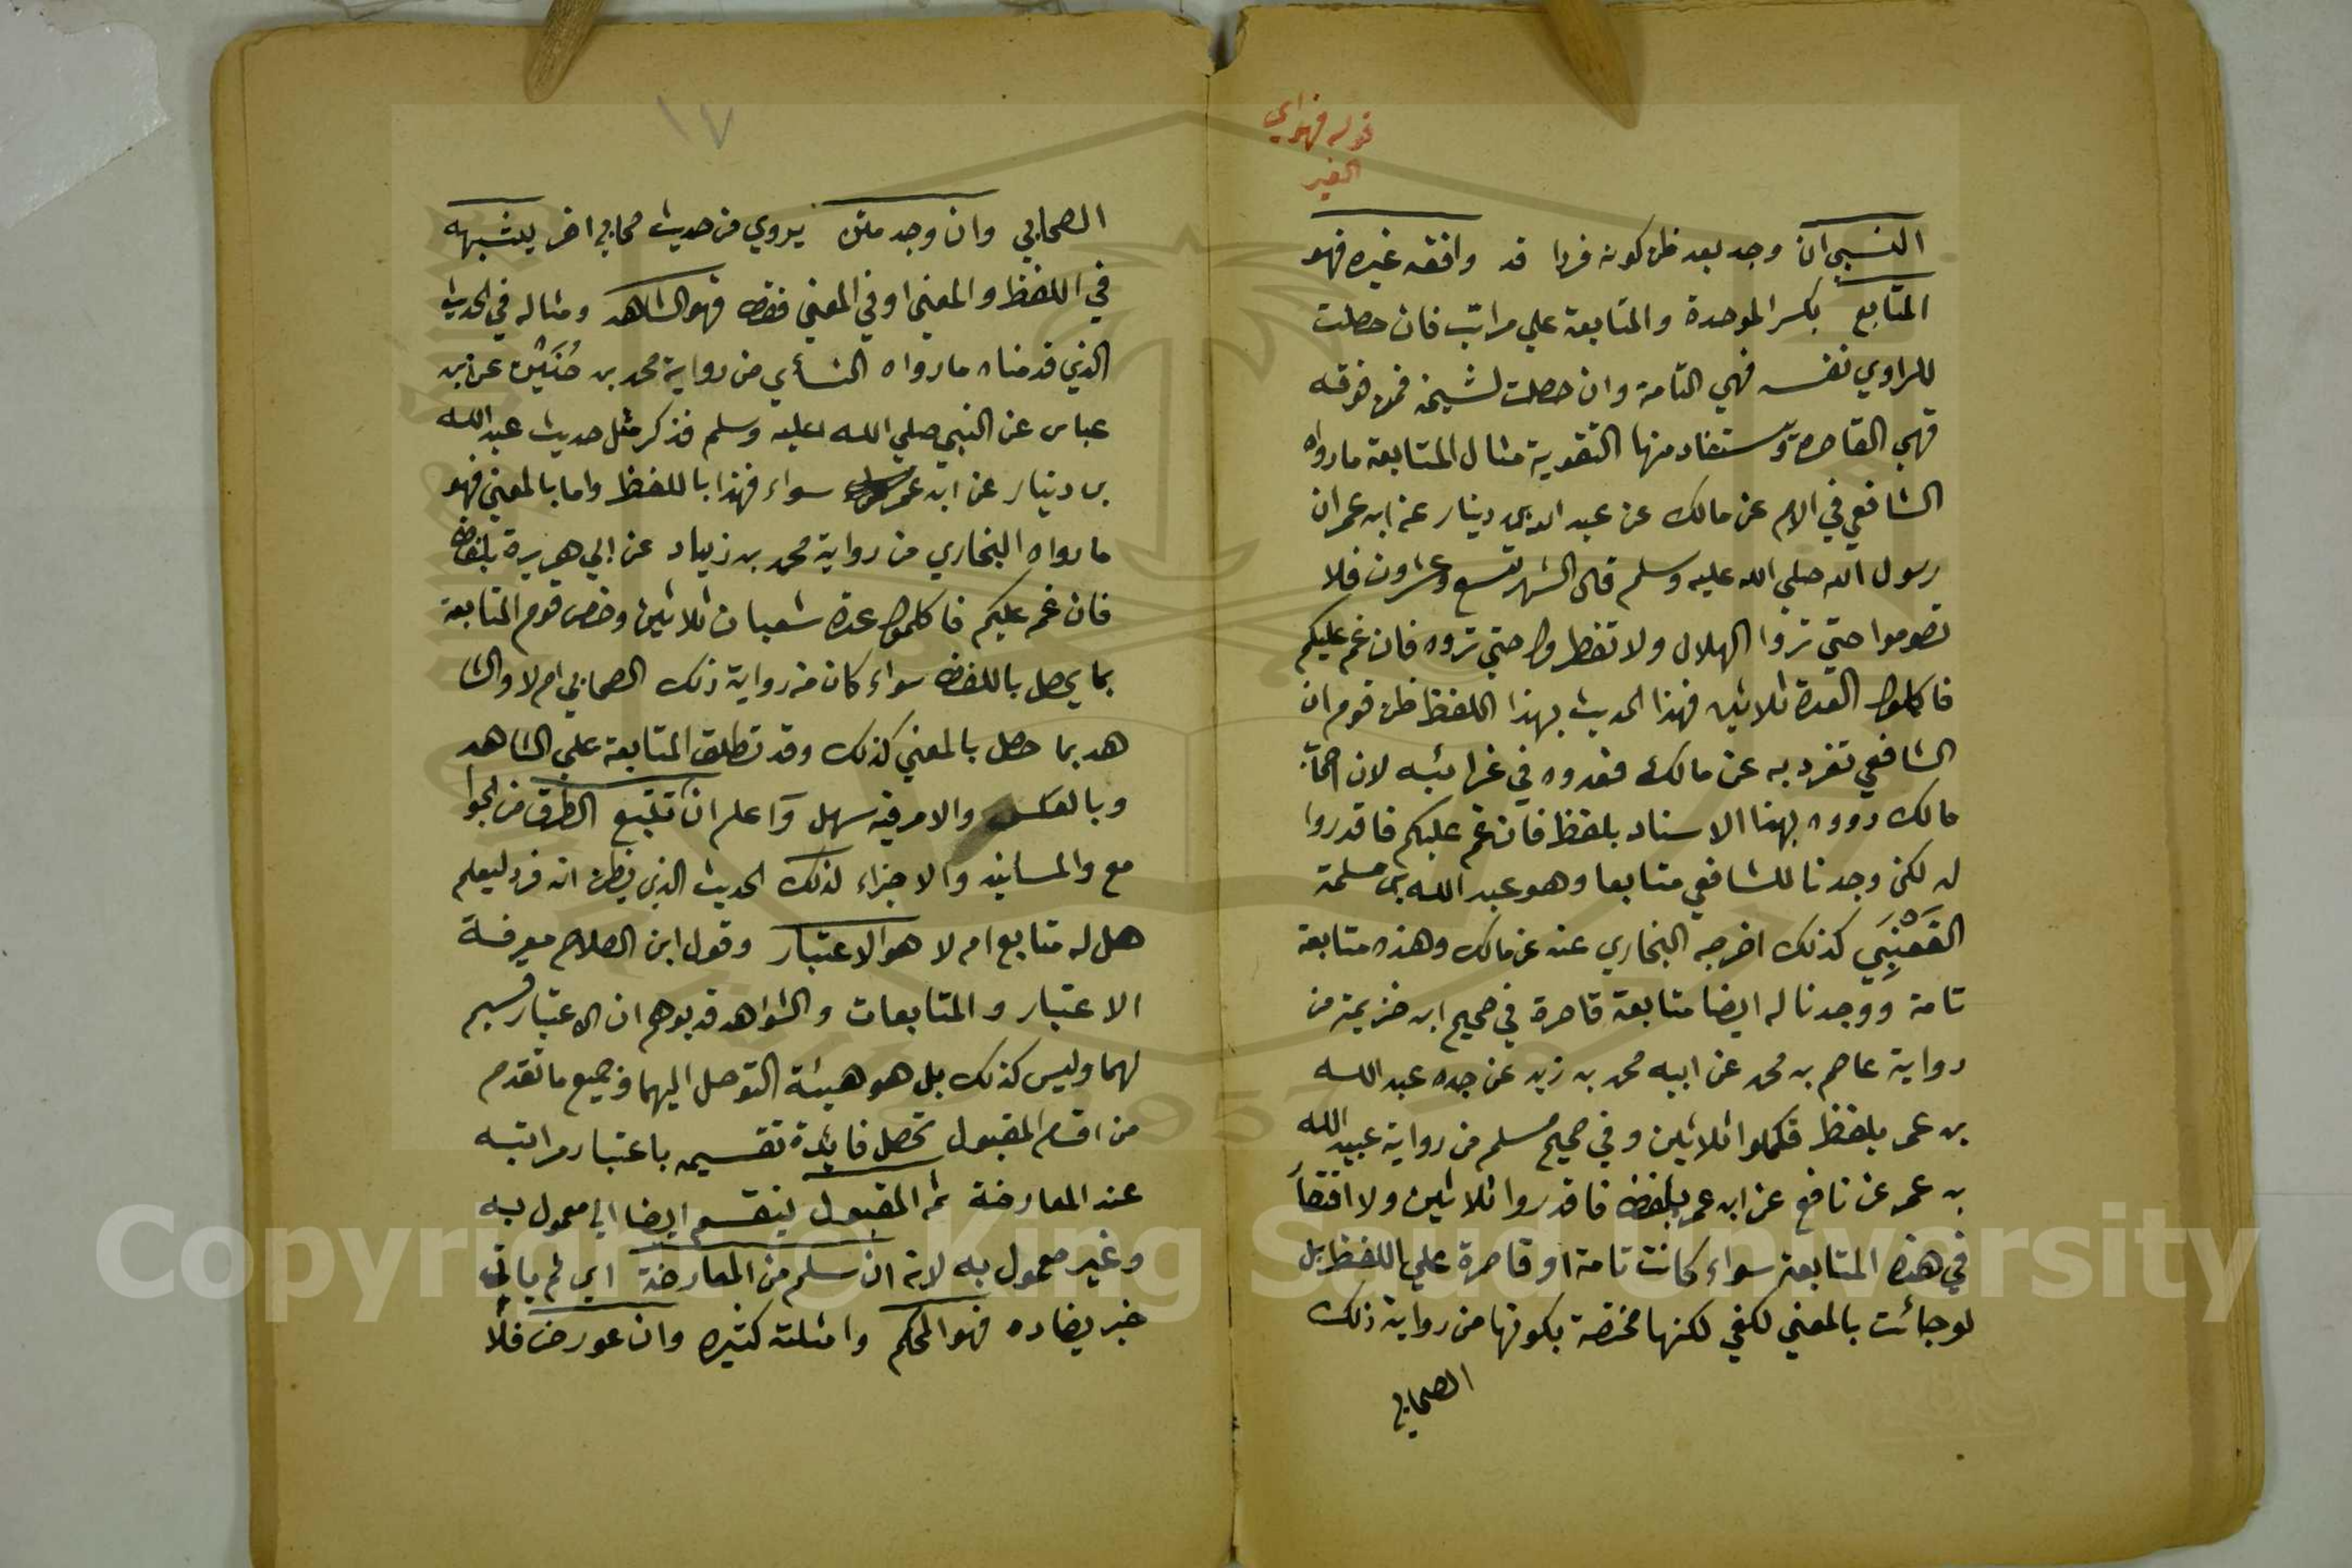 قوله فهو اي
الغير
النسبي ان وجد بعد ظن كونه فردا قد وافقه غيره فهو
المتابع بكسر الموحدة والمتابعة علي مراتب فان حصلت
للراوي نفسه فهي التامة وان حصلت لشيخه فمن فوقه
فهي القاصرة ويستفاد منها التقوية مثال المتابعة مارواه
الشافعي في الام عن مالك عن عبد الله بن دينار عن ابن عمر ان
رسول الله صلي الله عليه وسلم قال الشهر تسع وعشرون فلا
تصوموا حتي تروا الهلال ولا تفطروا حتي تروه فان غم عليكم
فاكملوا العدة ثلاثين فهذا الحديث بهذا اللفظ ظن قوم ان
الشافعي تفرد به عن مالك فعدوه في غرائبه لان اصحاب
مالك رووه بهذا الاسناد بلفظ فان غم عليكم فاقدروا
له لكن وجدنا للشافعي متابعا وهو عبد الله بن مسلمة
القَعْنَبِي كذلك اخرجه البخاري عنه عن مالك وهذه متابعة
تامة ووجدنا له ايضا متابعة قاصرة في صحيح ابن خزيمة من
رواية عاصم بن محمد عن ابيه محمد بن زيد عن جده عبد الله
بن عمر بلفظ فكملوا ثلاثين وفي صحيح مسلم من رواية عبيد الله
بن عمر عن نافع عن ابن عمر بلفظ فاقدروا ثلاثين ولا اقتصار
في هذه المتابعة سواء كانت تامة او قاصرة علي اللفظ بل
لو جائت بالمعني لكفي لكنها مختصة بكونها من رواية ذلك
الصحابي
١٧
الصحابي وان وجد متن يروي من حديث صحابي اخر يشبهه
في اللفظ والمعني او في المعني فقط فهو الشاهد ومثاله في الحديث
الذي قدمناه ما رواه النسأي من رواية محمد بن حُنَيْن عن ابن
عباس عن النبي صلي الله عليه وسلم فذكر مثل حديث عبد الله
بن دينار عن ابن عمر سواء فهذا باللفظ واما بالمعني فهو
مارواه البخاري من رواية محمد بن زياد عن ابي هريرة بلفظ
فان غم عليكم فاكملوا عدة شعبان ثلاثين وخص قوم المتابعة
بما يحصل باللفظ سواء كان من رواية ذلك الصحابي ام لا والشا
هد بما حصل بالمعني كذلك وقد تطلق المتابعة علي الشاهد
وبالعكس والامر فيه سهل واعلم ان تتبع الطرق من الجوا
مع والمسانيد والاجزاء لذلك الحديث الذي يظن انه فرد ليعلم
هل له متابع ام لا هو الاعتبار وقول ابن الصلاح معرفة
الاعتبار والمتابعات والشواهد قد يوهم ان الاعتبار قسيم
لهما وليس كذلك بل هو هيئة التوصل اليهما وجميع ما تقدم
من اقسام المقبول تحصل فايدة تقسيمه باعتبار مراتبه
عند المعارضة ثم المقبول ينقسم ايضا الي معمول به
وغير معمول به لانه ان سلم من المعارضة اي لم يأت
خبر يضاده فهو المحكم وامثلته كثيره وان عورض فلا